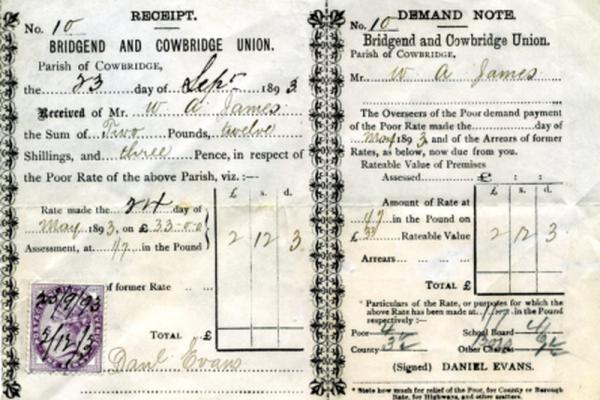 RECEIPT.
No. 10
BRIDGEND AND COWBRIDGE UNION.
Parish of COWBRIDGE,
the 23 day of Sepr 1893
Received of Mr. W A James
the Sum of Two Pounds, twelve
Shillings, and three Pence, in respect of
the Poor Rate of the above Parish, viz. :—
£ s. d.
Rate made the 24 day of
May 1893, on £33-0-0
Assessment, at 1/7 in the Pound
2 12 3
of former Rate
TOTAL £
Danl Evans
23/9/93
DEMAND NOTE.
No. 10
Bridgend and Cowbridge Union.
Parish of COWBRIDGE,
Mr. W A James
The Overseers of the Poor demand payment
of the Poor Rate made the day of
May 1893 and of the Arrears of former
Rates, as below, now due from you.
Rateable Value of Premises
Assessed £ : :
£ s. d.
Amount of Rate at
1/7 in the Pound on
£ 33 Rateable Value
2 12 3
Arrears
TOTAL £
* Particulars of the Rate, or purposes for which the
above Rate has been made at 1/7 in the Pound
respectively :—
Poor School Board
County Other Charges
(Signed) DANIEL EVANS.
* State how much for relief of the Poor, for County or Borough
Rate, for Highways, and other matters.